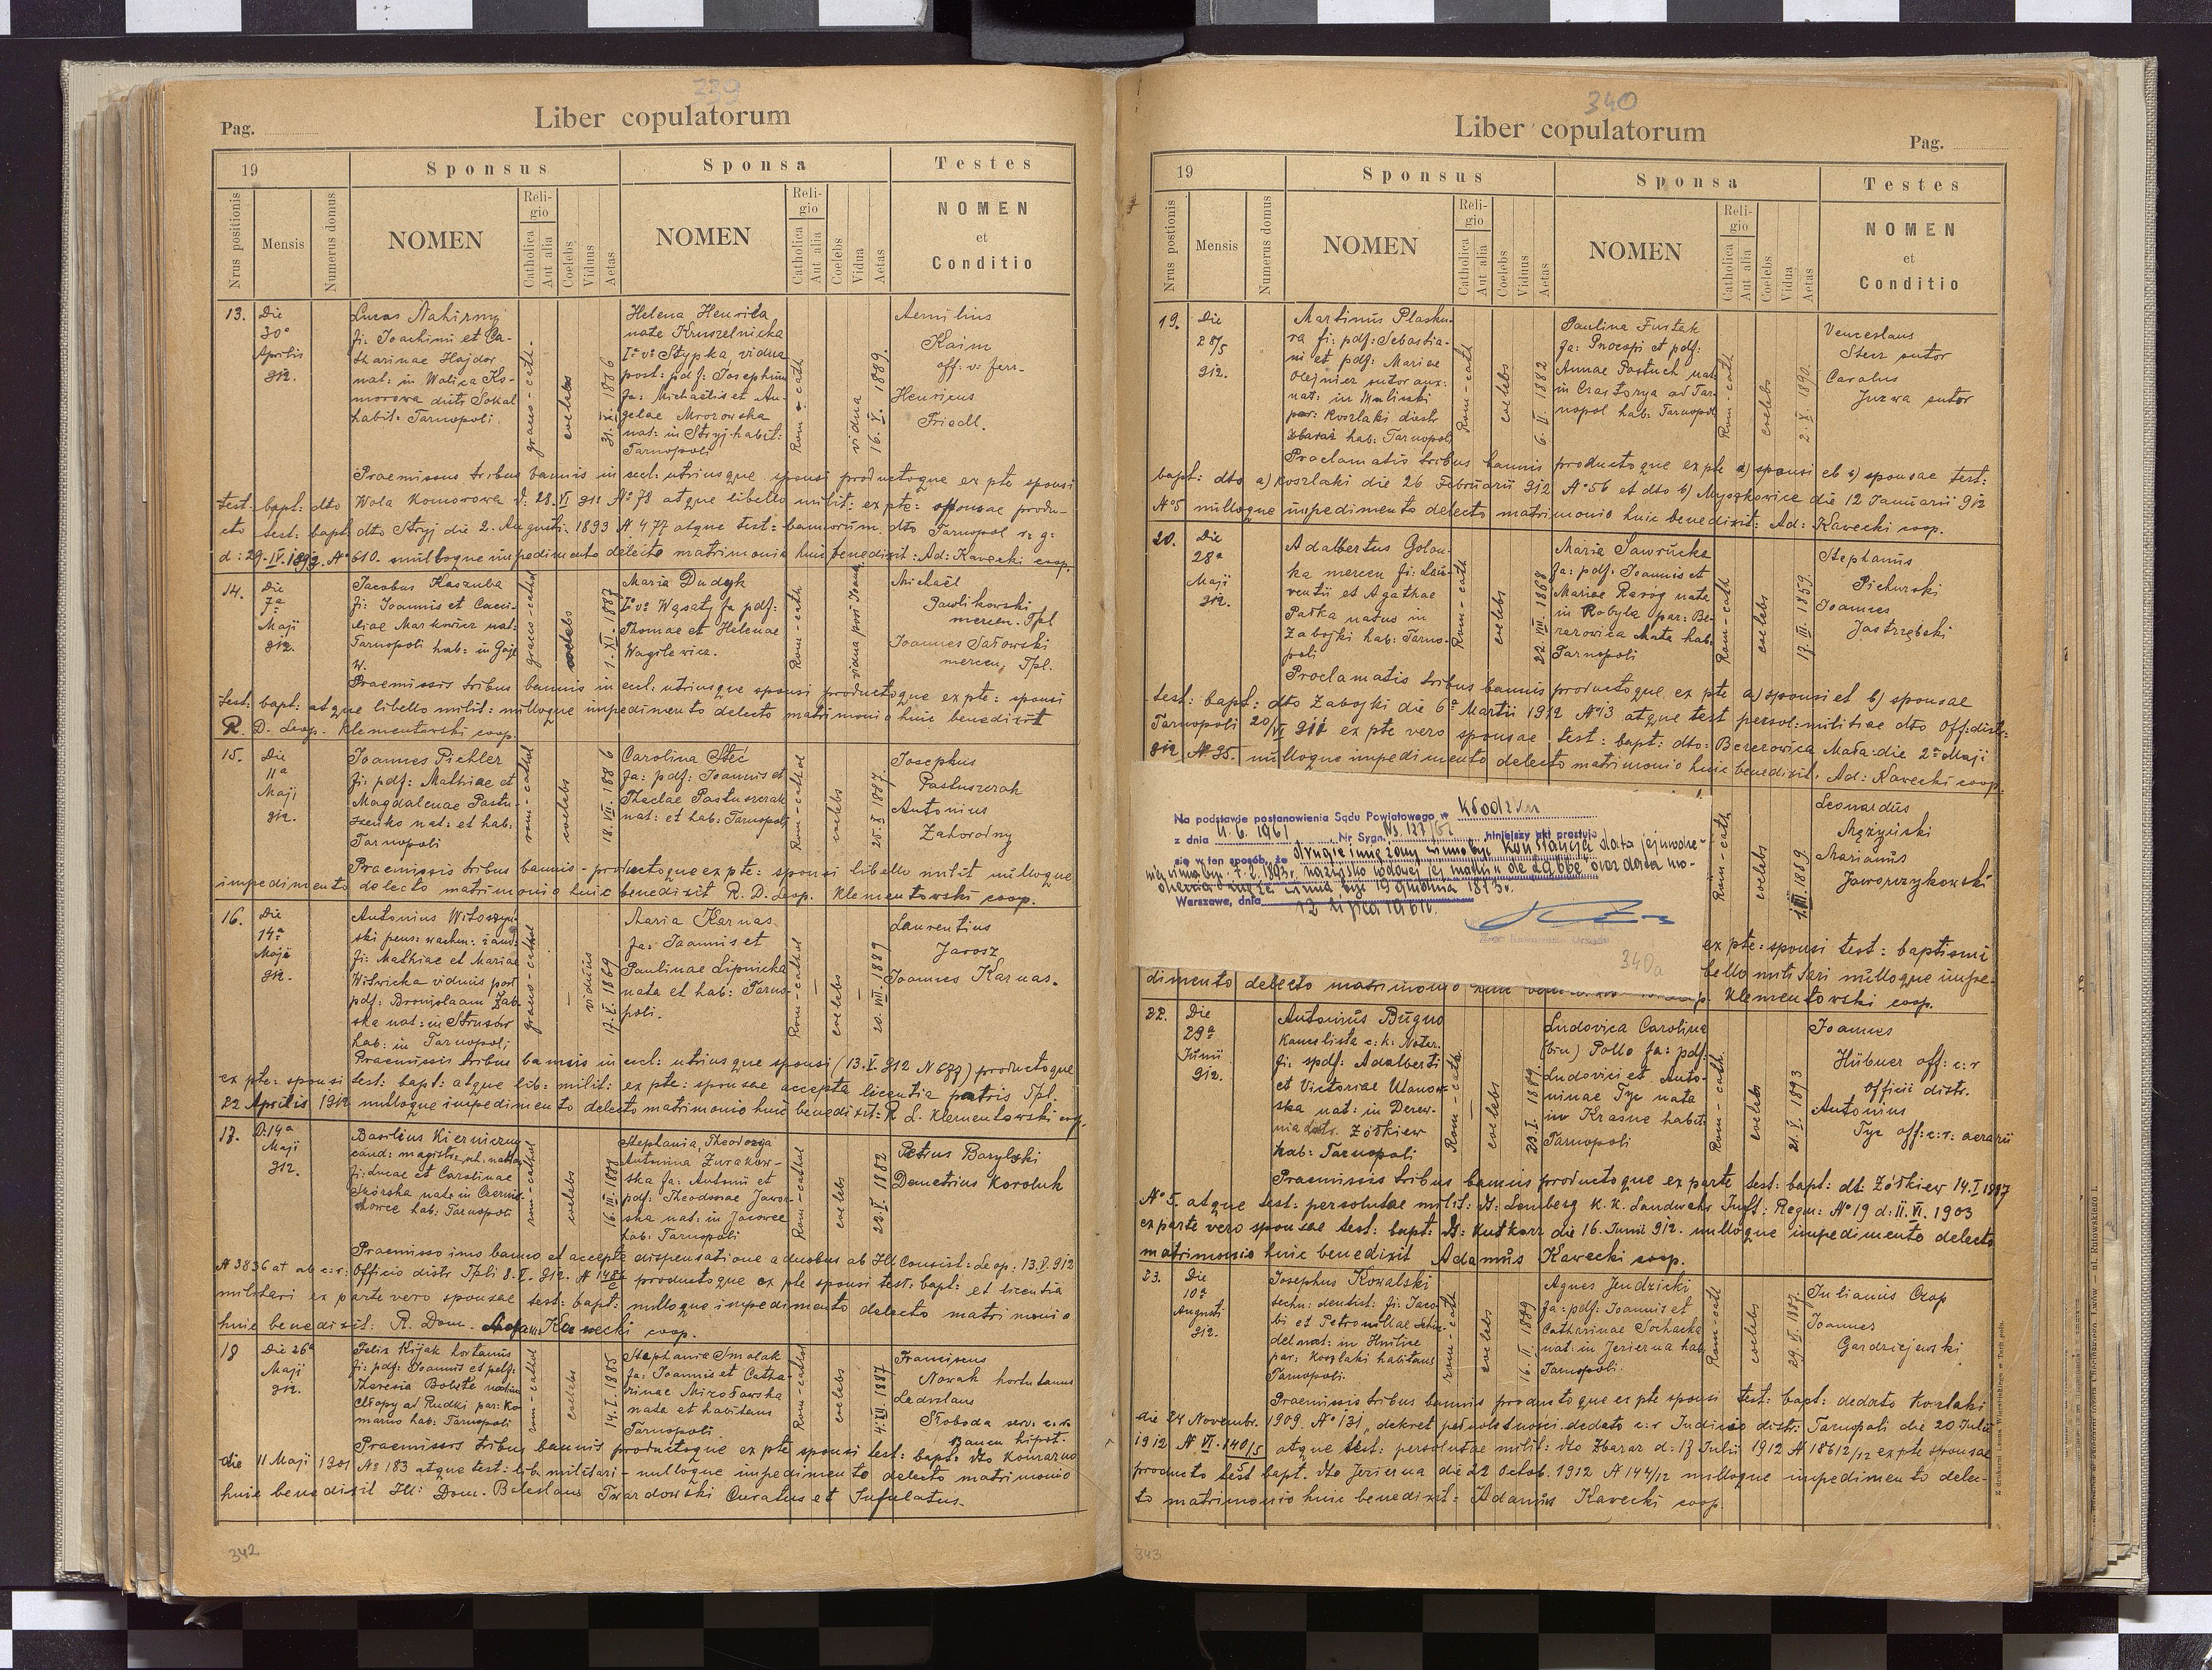 339
Liber copulatorum
Pag.
19
Sponsus
Sponsa
Testes
Nrus positionis
Mensis
Numerus domus
NOMEN
Religio
Catholica
Aut alia
Coelebs
Viduus
Aetas
NOMEN
Religio
Catholica
Aut alia
Coelebs
Vidua
Aetas
NOMEN
et
Conditio
13.
Die
30ª
Aprilis
912.
Lucas Nahirny
fi: Joachimi et Ca-
tharinae Hajdor
nat: in Wolica Ko-
morowa distr. Sokal
habit: Tarnopoli.
graeco-cath-
coelebs
31. X. 1886
Helena Henrika
nate Kruszelnicka
Iº vº Stypka, vidua
post: pdf: Josephum
fa: Michaëlis et An-
gelae Mrozowska
nat: in Stryj habit:
Tarnopoli
Rom-cath
vidua
16. V. 1889.
Aemilius
Kaim
off: v: ferr-
Henricus
Friedl.
Praemissus tribus bannis in eccl. utriusque sponsi productoque ex pte sponsi
test: bapt: dto Wola Komorowa d: 28. VI 911 Nº 78 atque libello milit: ex pte: sponsae produ-
cto test: bapt dto Stryj die 2. Augusti 1893 N 477 atque test: bannorum dto Tarnopol r: g:
d: 29. IV. 1892. Nº 610. nulloque impedimento delecto matrimonio huic benedixit: Ad: Kawecki coop.
14.
Die
7ª
Maji
912.
Jacobus Kaszuba
fi: Joannis et Caeci-
liae Markowicz nat:
Tarnopoli hab: in Gaje
W.
graeco-cathol
coelebs
1. XI. 1887
Maria Dudyk
Iº vº Wąsaty fa pdf:
Thomae et Helenae
Wagilewicz.
Rom-cath
Michaël
Pawlikowski
mercen. Tpl
Joannes Sałowski
mercen, Tpl.
Praemissis tribus bannis in eccl. utriusque sponsi productoque ex pte: sponsi
test: bapt: atque libello milit: nulloque impedimento delecto matrimonio huic benedixit
R. D. Leop. Klementowski coop.
15.
Die
11ª
Maji
912.
Joannes Pichler
fi: pdf: Mathiae et
Magdalenae Pastu-
szenko nat: et hab:
Tarnopoli
rom-cathol
coelebs
18. VII. 1886
Carolina Stec
fa: pdf: Joannis et
Theclae Pastuszczak
nat: et hab: Tarnopoli
Rom-cathol
coelebs
25. X 1887
Josephus
Pastuszczak
Antonius
Zahorodny
Praemissis tribus bannis - productoque ex pte: sponsi libello milit nulloque
impedimento delecto matrimonio huic benedixit R. D. Leop. Klementowski coop.
16.
Die
14ª
Maja
912.
Antonius Witoszyń-
ski pens: wachm: żand-
fi: Mathiae et Mariae
Witwicka viduus post
pdf: Bronislaam Żab-
ska nat: in Strusów
hab: in Tarnopoli
graeco-cathol
viduus
17. V. 1869
Maria Karnas
fa: Joannis et
Paulinae Lipnicka
nata et hab: Tarno-
poli.
Rom-cathol
coelebs
20. VII. 1889
Laurentius
Jarosz
Joannes Karnas.
Praemissis tribus bannis in eccl: utriusque sponsi (13. V. 912 N 677) productoque
ex pte: sponsi test: bapt: atque lib: milit: ex pte: sponsae accepta licentia patris Tpl:
22 Aprilis 1912 nulloque impedimento delecto matrimonio huic benedixit: R L. Klementowski coop.
17.
D: 14ª
Maji
912.
Basilius Kierniczny
fi: Lucae et Carolinae
Skórska nate in Czernic-
howce hab: Tarnopoli
rom-cathol
coelebs
16. III. 1881
Stephania Theodozya
Antonina Żurakow-
ska fa: Antonii et
pdf: Theodosiae Jawor-
ska nat: in Jacowce
hab: Tarnopoli
Rom-cathol
coelebs
23. I. 1882
Petrus Barylski
Demetrius Koroluk
Praemisso uno banno et accepta dispensatione a duobus ab Ill Consist: Leop: 13. V. 912
N 3836 at ab c: r: Officio distr Tpli 8. V. 912. N 1486 productoque ex pte sponsi test: bapt: et licentia
militari ex parte vero sponsae test: bapt: nulloque impedimento delecto matrimonio
huic benedixit: R. Dom. Adam Kawecki coop.
18
Die 26ª
Maji
912.
Felix Kijak hortanus
fi: pdf: Joannis et pdf:
Theresia Bobite natus in
Chłopy ad Rudki par: Ko-
marno hab: Tarnopoli
rom-cathol
coelebs
14. I. 1885
Stephania Smolak
fa: Joannis et Catha-
rinae Mirosławska
nata et habitans
Tarnopoli
Rom-cathol
coelebs
4. XII. 1887
Franciscus
Nowak hortulanus
Ladislaus
Słoboda serv: c. r.
Bancu hipot.
Praemissis tribus bannis productoque ex pte sponsi test: bapt: dto Komarno
die 11 Maji 1901 Nº 183 atque test: lib: militari - nulloque impedimento delecto matrimonio
huic benedixit Ill: Dom. Boleslaus Twardowski Curatus et Infulatus.
342
340
Liber copulatorum
Pag.
19
Sponsus
Sponsa
Testes
Nrus positionis
Mensis
Numerus domus
NOMEN
Religio
Catholica
Aut alia
Coelebs
Viduus
Aetas
NOMEN
Religio
Catholica
Aut alia
Coelebs
Vidua
Aetas
NOMEN
et
Conditio
19.
Die
28/5
912.
Martinus Plasku-
ra fi: pdf: Sebastia-
ni et pdf: Mariae
Olejnicz sutor aux:
nat: in Maliniki
par: Koszlaki distr
Zbaraż hab: Tarnopoli
Rom-cath
coelebs
6. II. 1882
Paulina Furtak
fa: Procopi et pdf:
Annae Pastuch nat:
in Czastorya ad Tar-
nopol hab: Tarnopol
Rom-cath
coelebs
2. X. 1890.
Venceslaus
Sterz sutor
Carolus
Juzwa sutor
Proclamatis tribus bannis productoque ex pte a) sponsi et b) sponsae test:
bapt: dto a) Koszlaki die 26 Februarii 912 Nº 56 et dto b) Myszkowice die 12 Januarii 912
Nº 5 nulloque impedimento delecto matrimonio huic benedixit: Ad: Kawecki coop.
20.
Die
28ª
Maji
912.
Adalbertus Golon-
ka mercen fi: Lau-
rentii et Agathae
Pałka natus in
Zabojki hab: Tarno-
poli
Rom-cath
coelebs
22. VIII. 1868
Maria Sawrucka
fa: pdf. Joannis et
Mariae Raróg nata
in Kobyla par: Be-
rezowica Mała hab:
Tarnopoli
Rom-cath
coelebs
17. III. 1859
Stephanus
Pichurski
Joannes
Jastrzębski
Proclamatis tribus bannis productoque ex pte a) sponsi et b) sponsae
test: bapt: dto Zabojki die 6ª Martii 1912 Nº 13 atque test persol: militiae dto Off: distr:
Tarnopoli 20/VI 911 ex pte vero sponsae test: bapt: dto: Berezowica Mała: die 2ª Maji
912 Nº 35. nulloque impedimento delecto matrimonio huic benedixit. Ad: Kawecki coop.
Na podstawie postanowienia Sądu Powiatowego w Kłodzku
z dnia 11. 6. 1961 Nr Sygn. Ns. 127/61 niniejszy akt prostuje
się w ten sposób, że drugie imię żony winno być "Konstancja" data jej urodze-
nia winna być 7. 2. 1893 r. nazwisko rodowe jej matki
winna być 19 grudnia 1873 r.
Warszawa, dnia 12 lipca 1961 r.
340a
Rom-cath
coelebs
1. III. 1889
Leonardus
Mężyński
Marianus
Jaworzykowski
ex pte: sponsi test: baptismi
bello militari nulloque impe-
dimento delecto matrimonio
Klementowski coop.
22.
Die
29ª
Junii
912.
Antonius Bugno
Kancelista c: k: Notar.
fi: spdf: Adalberti
et Victoriae Ulanow-
ska nat: in Derew-
nia distr. Żółkiew
hab: Tarnopoli
Rom-cath.
coelebs
23. I. 1889
Ludovica Carolina
(bin) Pollo fa: pdf:
Ludovici et Anto-
ninae Tyc nata
in Krasne habit:
Tarnopoli
Rom-cath.
coelebs
21. V. 1893
Joannes
Hübner off: c: r
Officii distr.
Antonius
Tyc off: c: r: aerarii
Praemissis tribus bannis productoque ex parte test: bapt: dt: Żółkiew 14. I 1887
Nº 5. atque test: persolutae milit: dt: Lemberg k. k. Landwehr Inft: Regm: Nº 19 d: II. VI. 1903
ex parte vero sponsae test: bapt: dt: Kutkorz die 16. Junii 912. nulloque impedimento delecto
matrimonio huic benedixit Adamus Kawecki coop.
23.
Die
10ª
Augusti
912.
Josephus Kowalski
techn: dentist: fi: Jaco-
bi et Petronillae Schin-
del nat: in Hnilice
par: Koszlaki habitans
Tarnopoli.
rom-cath
coelebs
16. II. 1889
Agnes Jendzicki
fa: pdf: Joannis et
Catharinae Sochacka
nat: in Jezierna hab:
Tarnopoli.
Rom-cath
coelebs
29. II. 1887.
Julianus Czop
Joannes
Gardziejewski
Praemissis tribus bannis productoque ex pte sponsi test: bapt: dedato Koszlaki
die 24 Novembr. 1909. Nº 131, dekret pełnoletności dedato c: r Iudicio distr: Tarnopoli die 20 Julii
1912 N VI. 140/5 atque test: persolutae milit: dto Zbaraż d: 17 Julii 1912 N 18612/12 ex pte sponsae
producto test bapt. dto Jezierna die 22 Octob. 1912 N 144/12 nulloque impedimento delec-
to matrimonio huic benedixit: Adamus Kawecki coop.
343